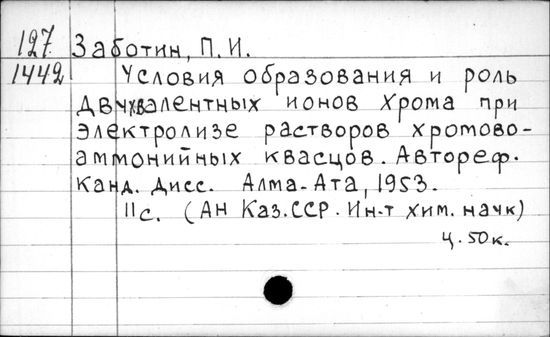 127 Заботин, П. И.
1442 Условия образования и роль
двухвалентных ионов хрома при
электролизе растворов хромово-
аммонийных квасцов. Автореф.
канд. дисс. Алма-Ата, 1953.
11с. (АН Каз.ССР. Ин-т хим. наук)
Ц. 50к.